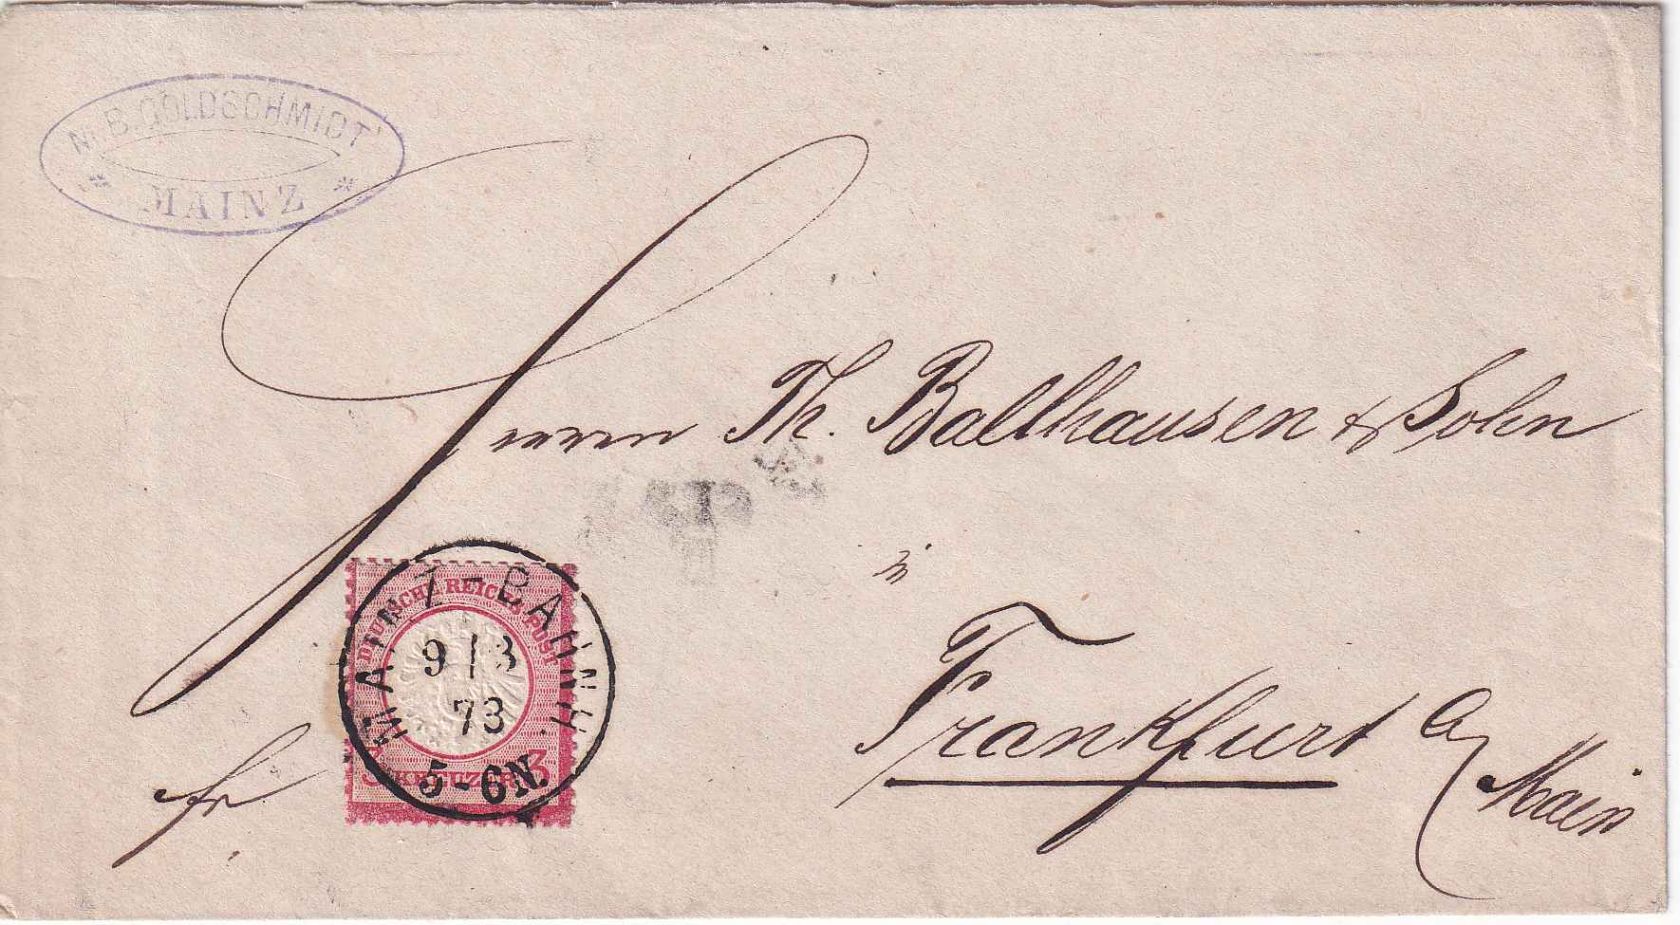 N. B. GOLDSCHMIDT
* MAINZ *
Herrn Th. Ballhausen & Sohn
in
Frankfurt a/
Main
fr
DEUTSCHE REICHS-POST
3 KREUZER 3
MAINZ-BAHNH.
9 | 3
73
5-6N.